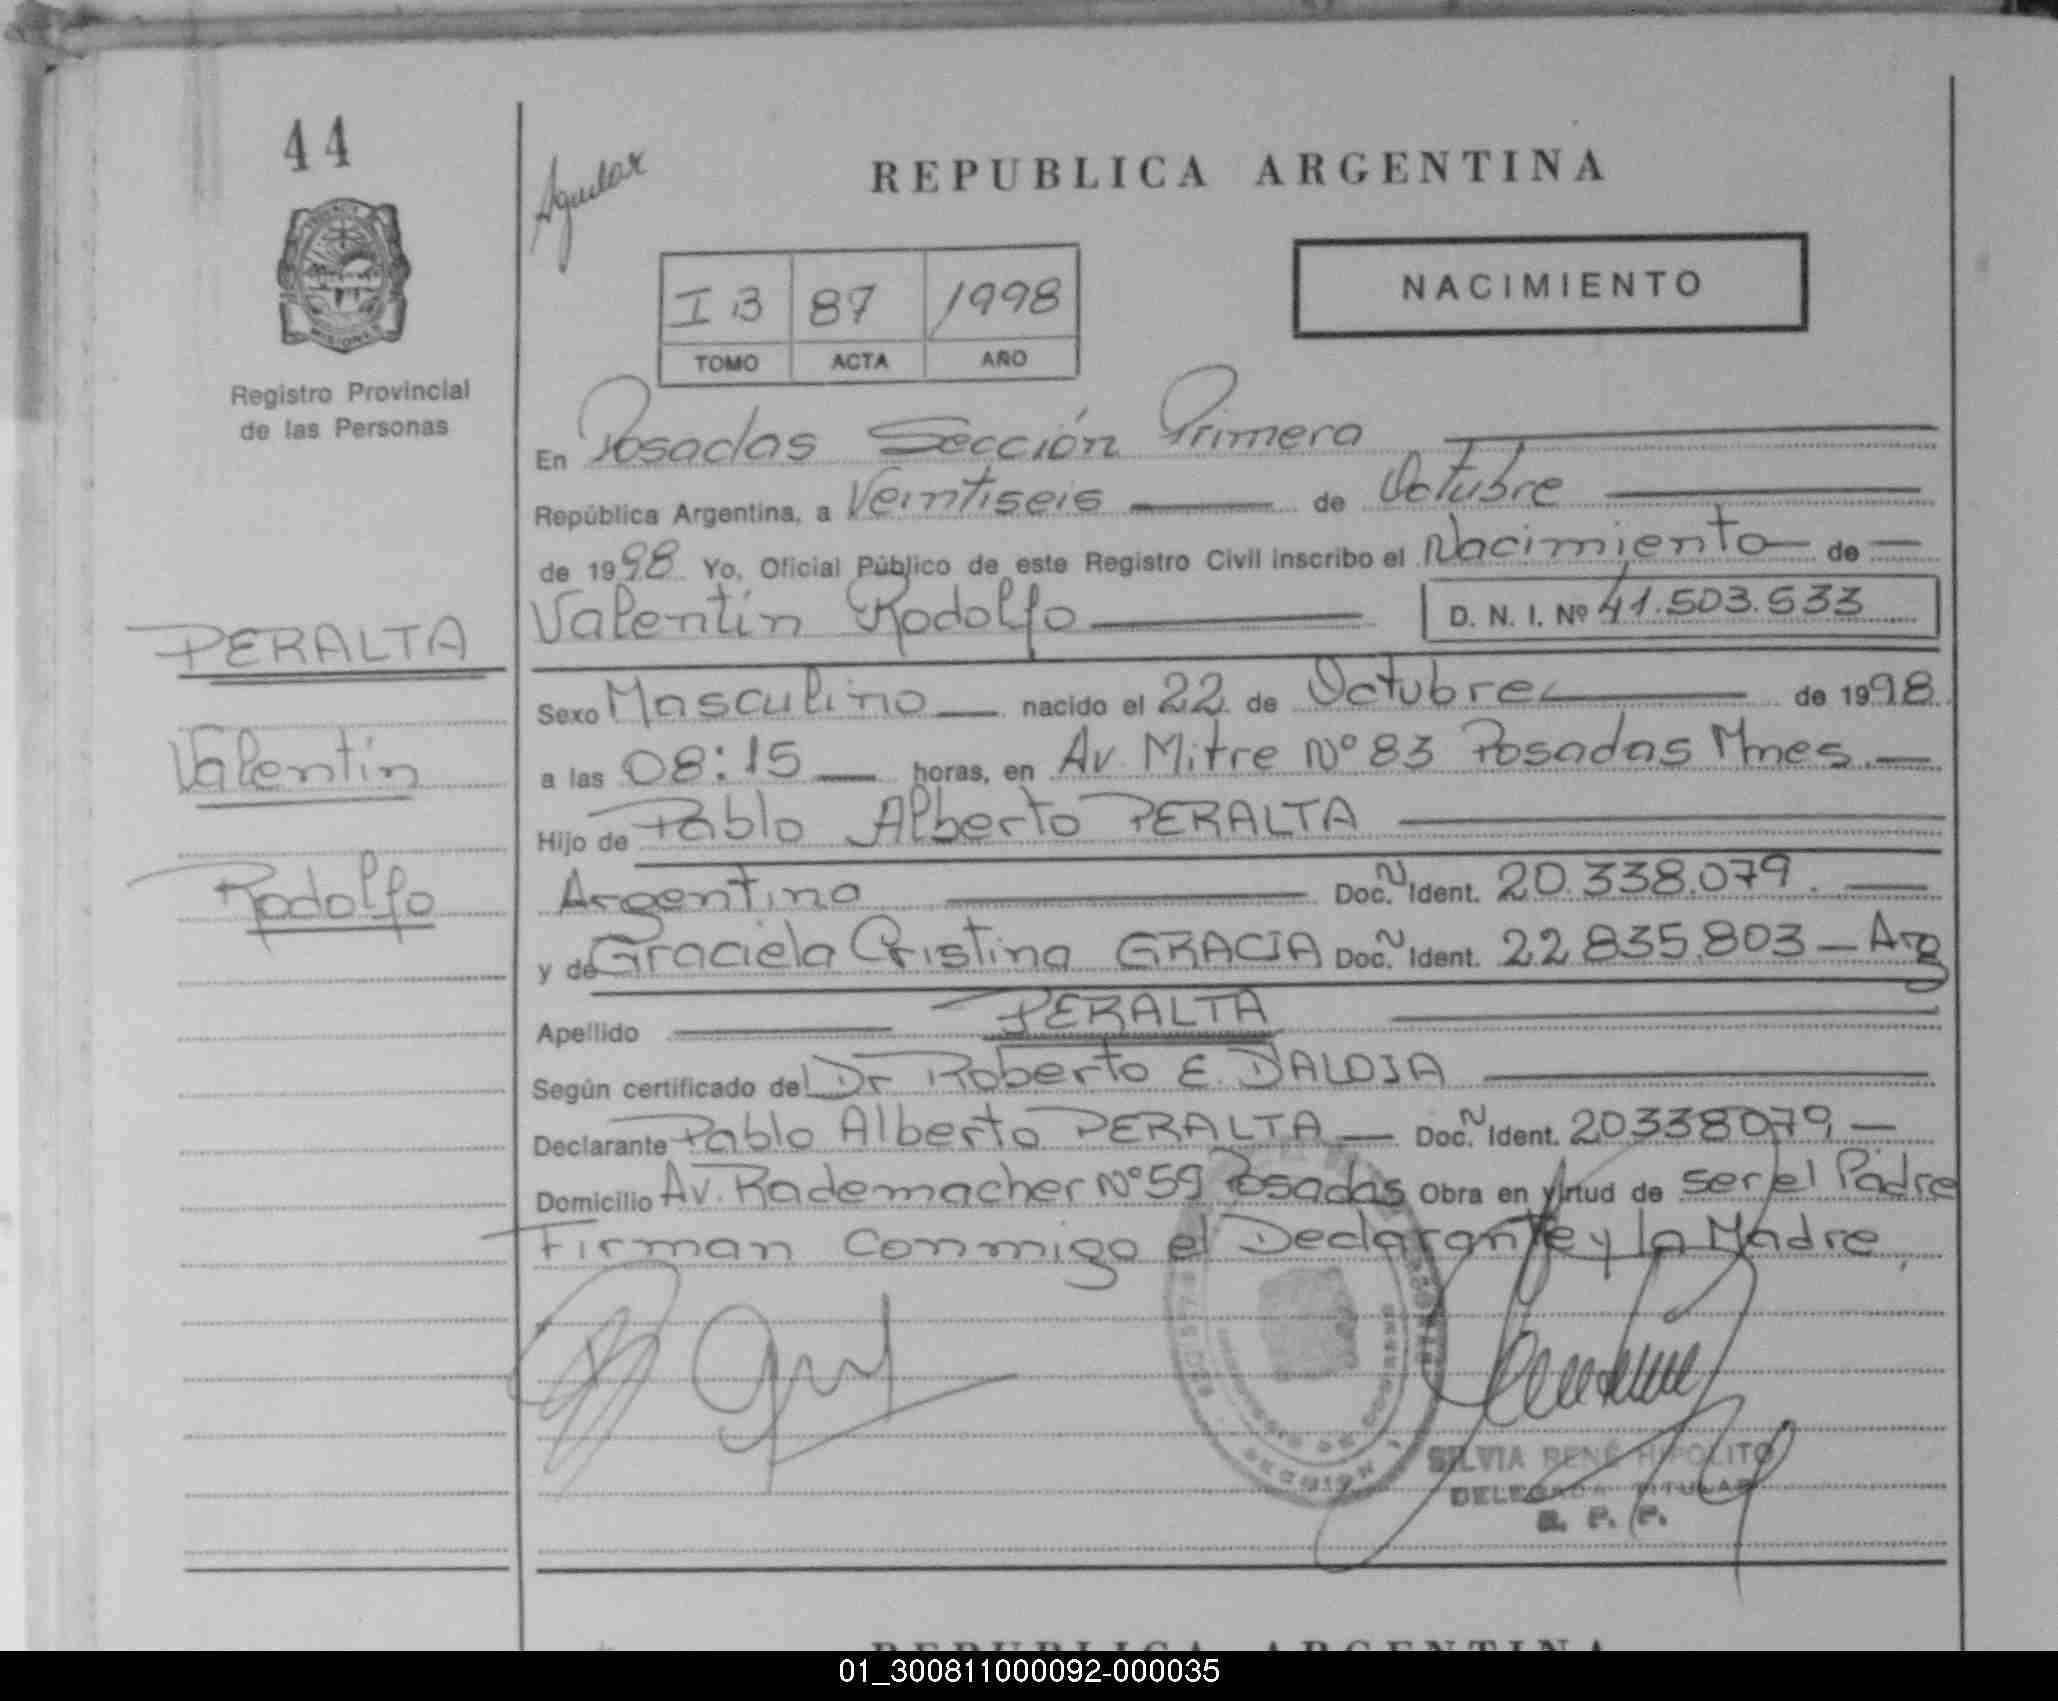 44
Registro Provincial
de las Personas
PERALTA
Valentín
Rodolfo
Aguilar
REPUBLICA ARGENTINA
NACIMIENTO
I B 87 1998
TOMO ACTA AÑO
En Posadas Sección Primera
República Argentina, a Veintiseis de Octubre
de 1998 Yo, Oficial Público de este Registro Civil inscribo el Nacimiento de
Valentín Rodolfo D. N. I. Nº 41.503.533
Sexo Masculino nacido el 22 de Octubre de 1998
a las 08:15 horas, en Av. Mitre Nº 83 Posadas Mnes.
Hijo de Pablo Alberto PERALTA
Argentino Doc. N Ident. 20.338.079.
y de Graciela Cristina GRACIA Doc. N Ident. 22.835.803 - Arg
Apellido PERALTA
Según certificado del Dr Roberto E. DALOIA
Declarante Pablo Alberto PERALTA Doc. N Ident. 20338079
Domicilio Av. Rademacher Nº 59 Posadas Obra en virtud de ser el Padre
Firman conmigo el Declarante y la Madre
SILVIA RENÉ HIPOLITO
DELEGADA TITULAR
R. P. P.
REPUBLICA ARGENTINA
01_300811000092-000035